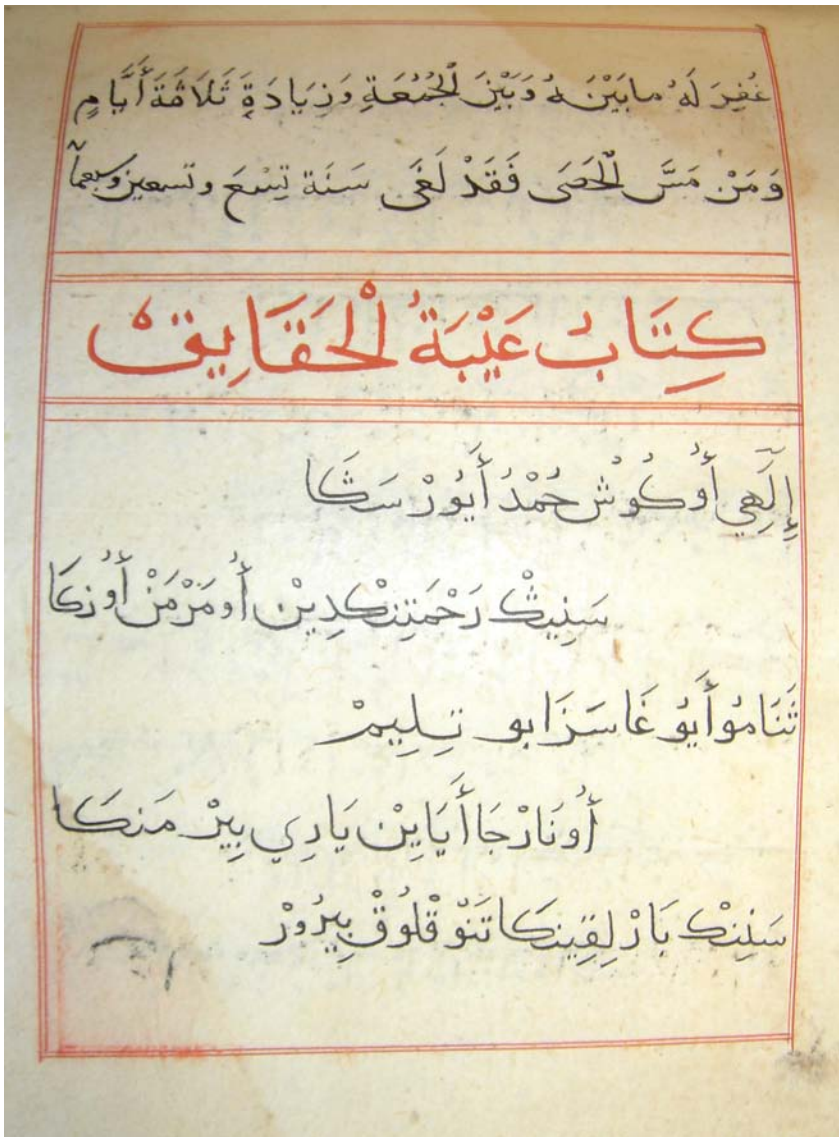 غُفِرَ لَهُ مابَيْنَهُ وَبَيْنَ الْجُمُعَةِ وَزِيَادَةِ ثَلَاثَةَ أَيَّامٍ
وَمَنْ مَسَّ الْحَصَى فَقَدْ لَغَى سَنَة تِسْعَ وتسعين وسبعمائة
كِتَابُ عَيْبَةُ الْحَقَايِقْ
إِلَهِي أُوكُوشْ حُمْدُ أَيُورْ سَنْكَا
سَنِينْكْ رَحْمَتِنكدِينْ أُومَرْمَنْ أُونكَا
ثَنَامُو أَيُوغَا سَزَا بو تِلِيمْ
أُونَارْجَا أَيَايِنْ يَارِي بِيرْ مَنكَا
سَنِنكْ بَارْلِقِينكَا تَنُو قْلُوقْ بِيرُورْ